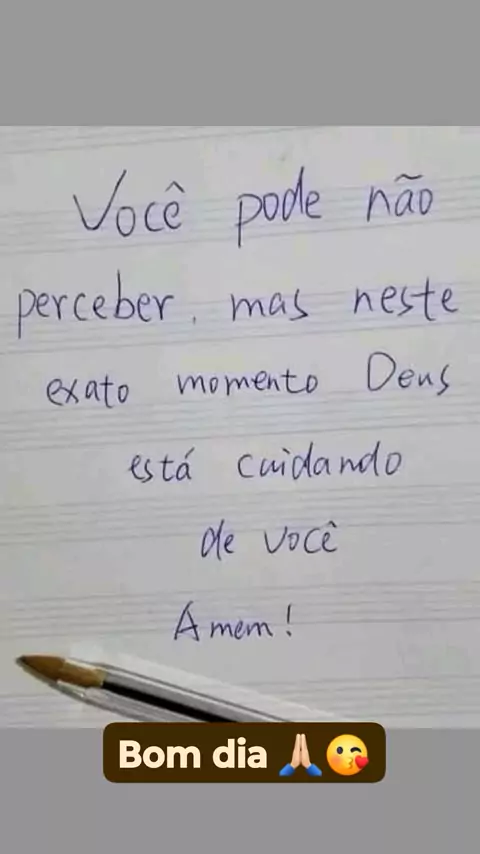 Você pode não
perceber, mas neste
exato momento Deus
está cuidando
de você
Amem!
Bom dia 🙏🏻😘